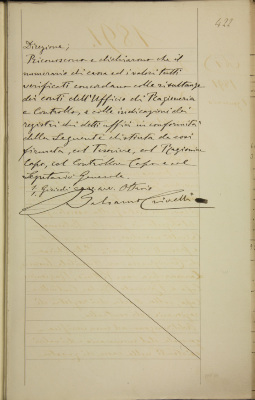 422
Direzione;
Riconoscono e dichiarano che il
numerario di cassa ed i valori tutti
verificati concordano colle risultanze
dei conti dell'Ufficio di Ragioneria
e Controllo, e colle indicazioni dei
registri dei detti uffici in conformità
della seguente distinta da essi
firmata, col Tesoriere, col Ragioniere
Capo, col Controllore Capo e col
Segretario Generale.
Crivelli